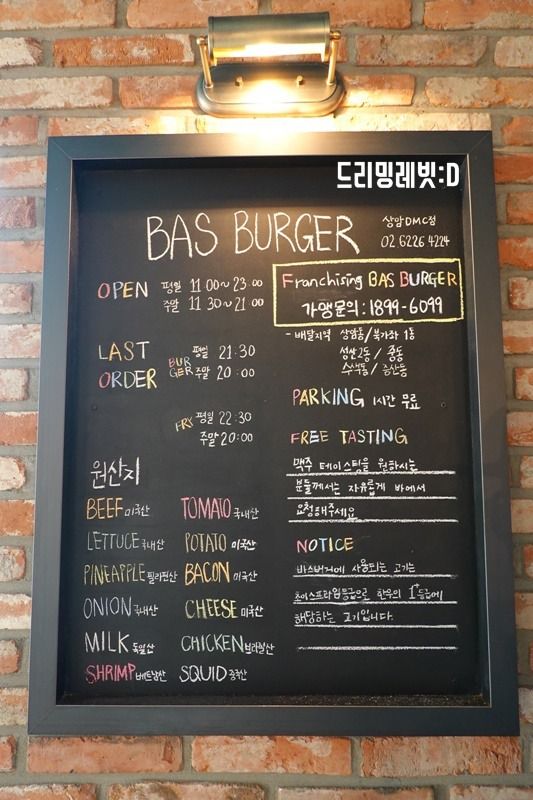 드리밍레빗:D
BAS BURGER
상암DMC점
02 6226 4224
OPEN 평일 11:00~23:00
주말 11:30~21:00
Franchising BAS BURGER
가맹문의:1899-6099
LAST ORDER
BURGER 평일 21:30
주말 20:00
FRY 평일 22:30
주말 20:00
-배달지역 상암동/북가좌 1동
성산2동/중동
수색동/증산동
PARKING 1시간 무료
FREE TASTING
맥주 테이스팅을 원하시는
분들께서는 자유롭게 바에서
요청해주세요
NOTICE
바스버거에 사용되는 고기는
초이스프라임등급으로 한우의 1+등급에
해당하는 고기입니다.
원산지
BEEF 미국산
TOMATO 국내산
LETTUCE 국내산
POTATO 미국산
PINEAPPLE 필리핀산
BACON 미국산
ONION 국내산
CHEESE 미국산
MILK 독일산
CHICKEN 브라질산
SHRIMP 베트남산
SQUID 중국산